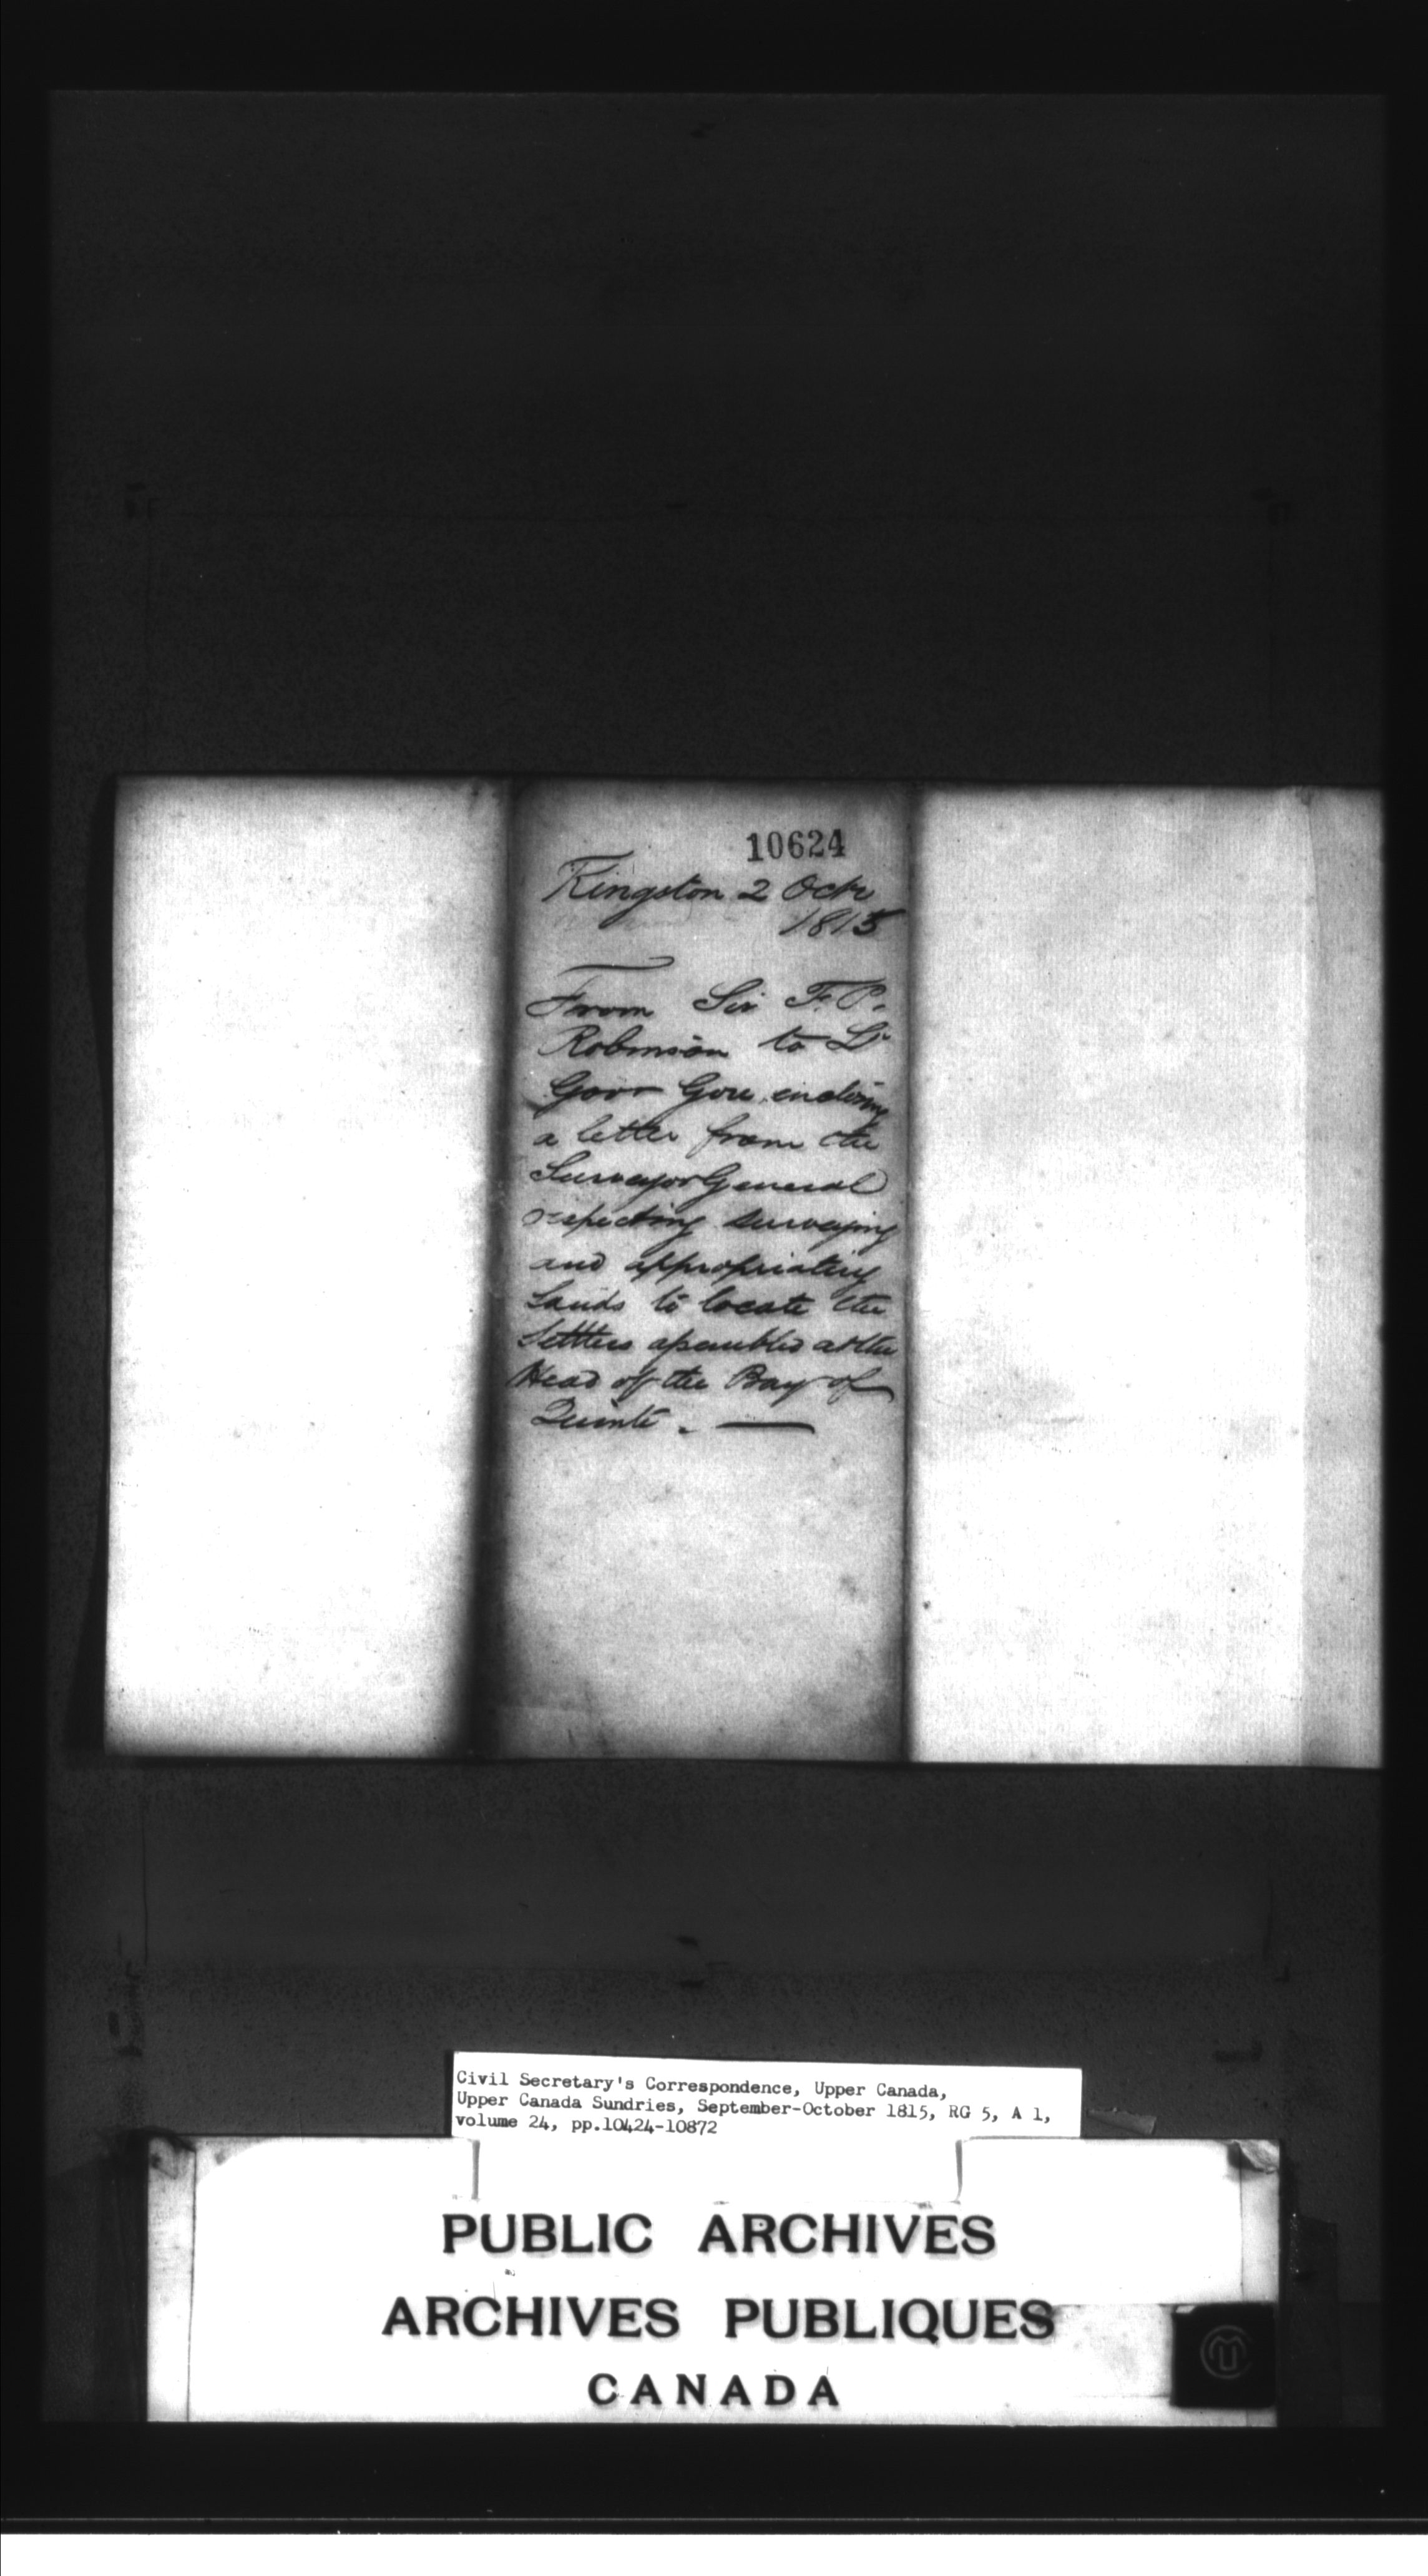 10624
Kingston 2 Octr
1815
From Sir F. P.
Robinson to Lt
Govr Gore enclosing
a letter from the
Surveyor General
respecting surveying
and appropriating
Lands to locate the
Settlers assembled at the
Head of the Bay of
Quinté. —
Civil Secretary's Correspondence, Upper Canada,
Upper Canada Sundries, September-October 1815, RG 5, A 1,
volume 24, pp.10424-10872
PUBLIC ARCHIVES
ARCHIVES PUBLIQUES
CANADA